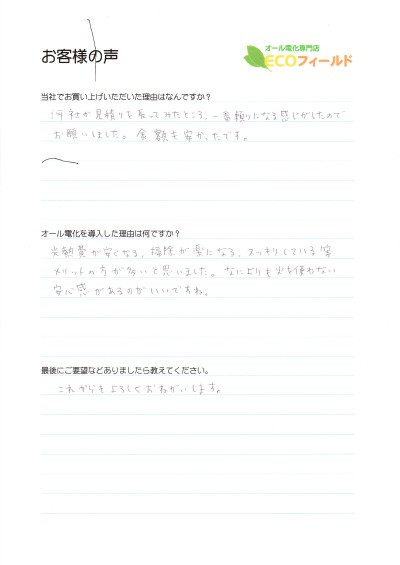 お客様の声
オール電化専門店
ECOフィールド
当社でお買い上げいただいた理由はなんですか？
何社か見積りを取ってみたところ、一番頼りになる感じがしたので
お願いしました。金額も安かったです。
オール電化を導入した理由は何ですか？
光熱費が安くなる，掃除が楽になる，スッキリしている等
メリットの方が多いと思いました。なによりも火を使わない
安心感があるのがいいですね。
最後にご要望などありましたら教えてください。
これからもよろしくおねがいします。